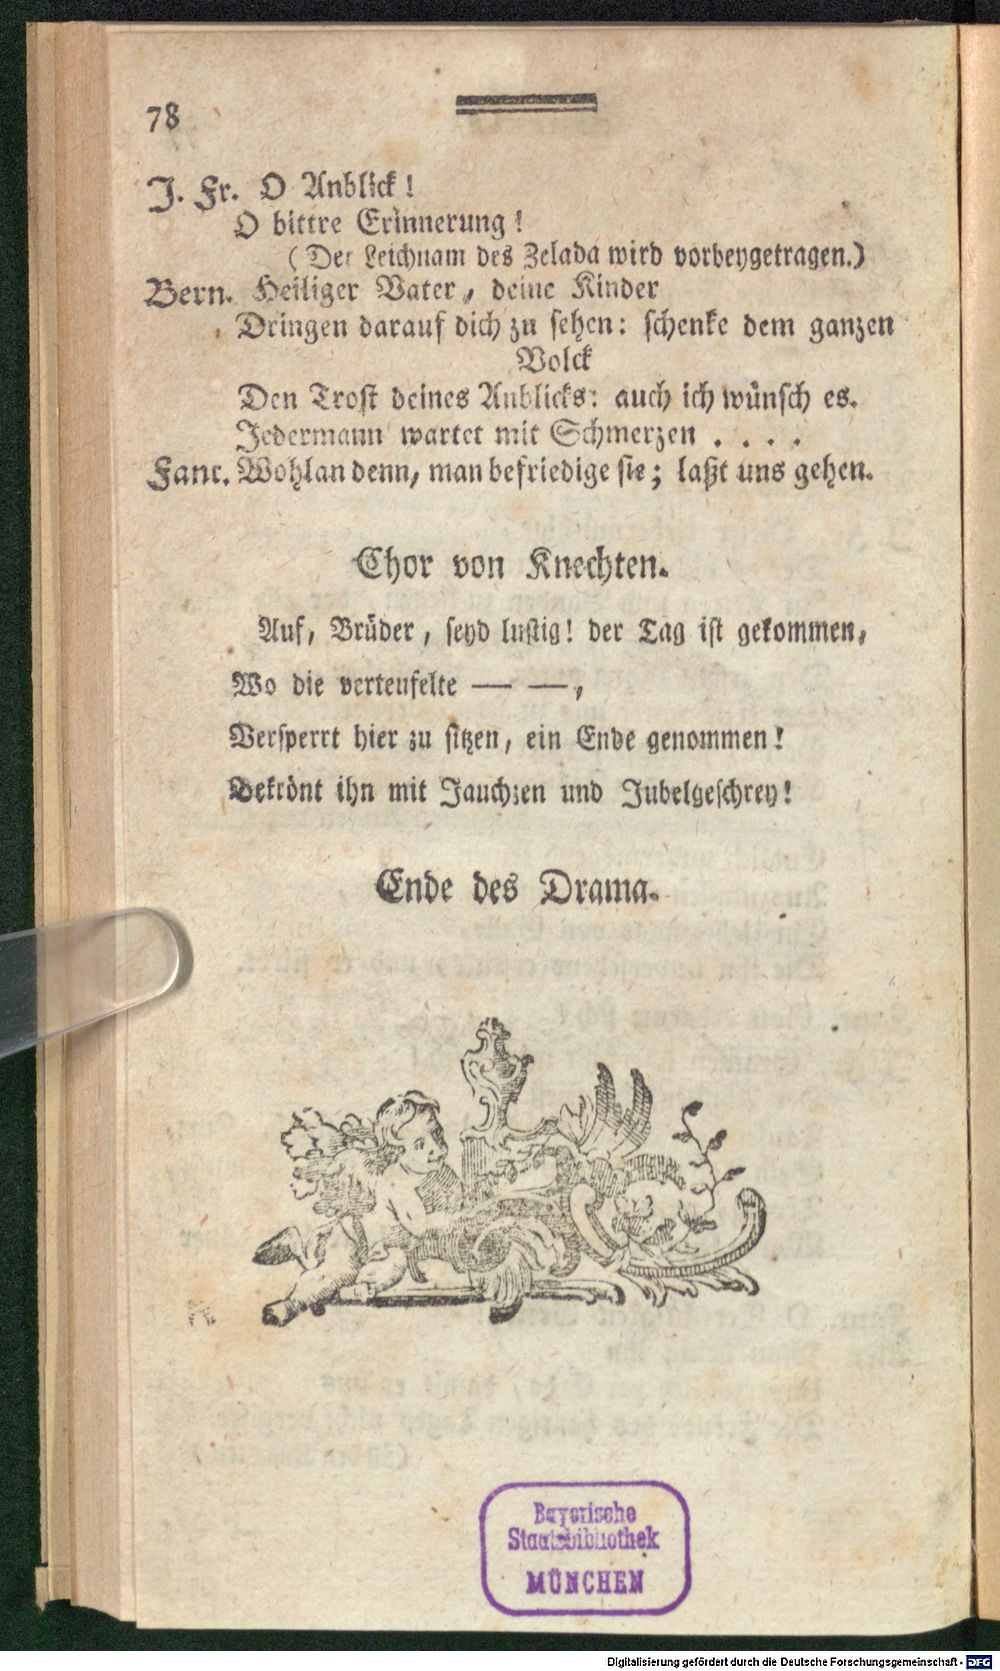 78
J. Fr. O Anblick!
O bittre Erinnerung!
(Der Leichnam des Zelada wird vorbeygetragen.)
Bern. Heiliger Vater, deine Kinder
Dringen darauf dich zu sehen: schenke dem ganzen
Volck
Den Trost deines Anblicks: auch ich wünsch es.
Jedermann wartet mit Schmerzen . . . .
Fanc. Wohlan denn, man befriedige sie; laßt uns gehen.
Chor von Knechten.
Auf, Brüder, seyd lustig! der Tag ist gekommen,
Wo die verteufelte — —,
Versperrt hier zu sitzen, ein Ende genommen!
Bekrönt ihn mit Jauchzen und Jubelgeschrey!
Ende des Drama.
Bayerische
Staatsbibliothek
MÜNCHEN
Digitalisierung gefördert durch die Deutsche Forschungsgemeinschaft - DFG